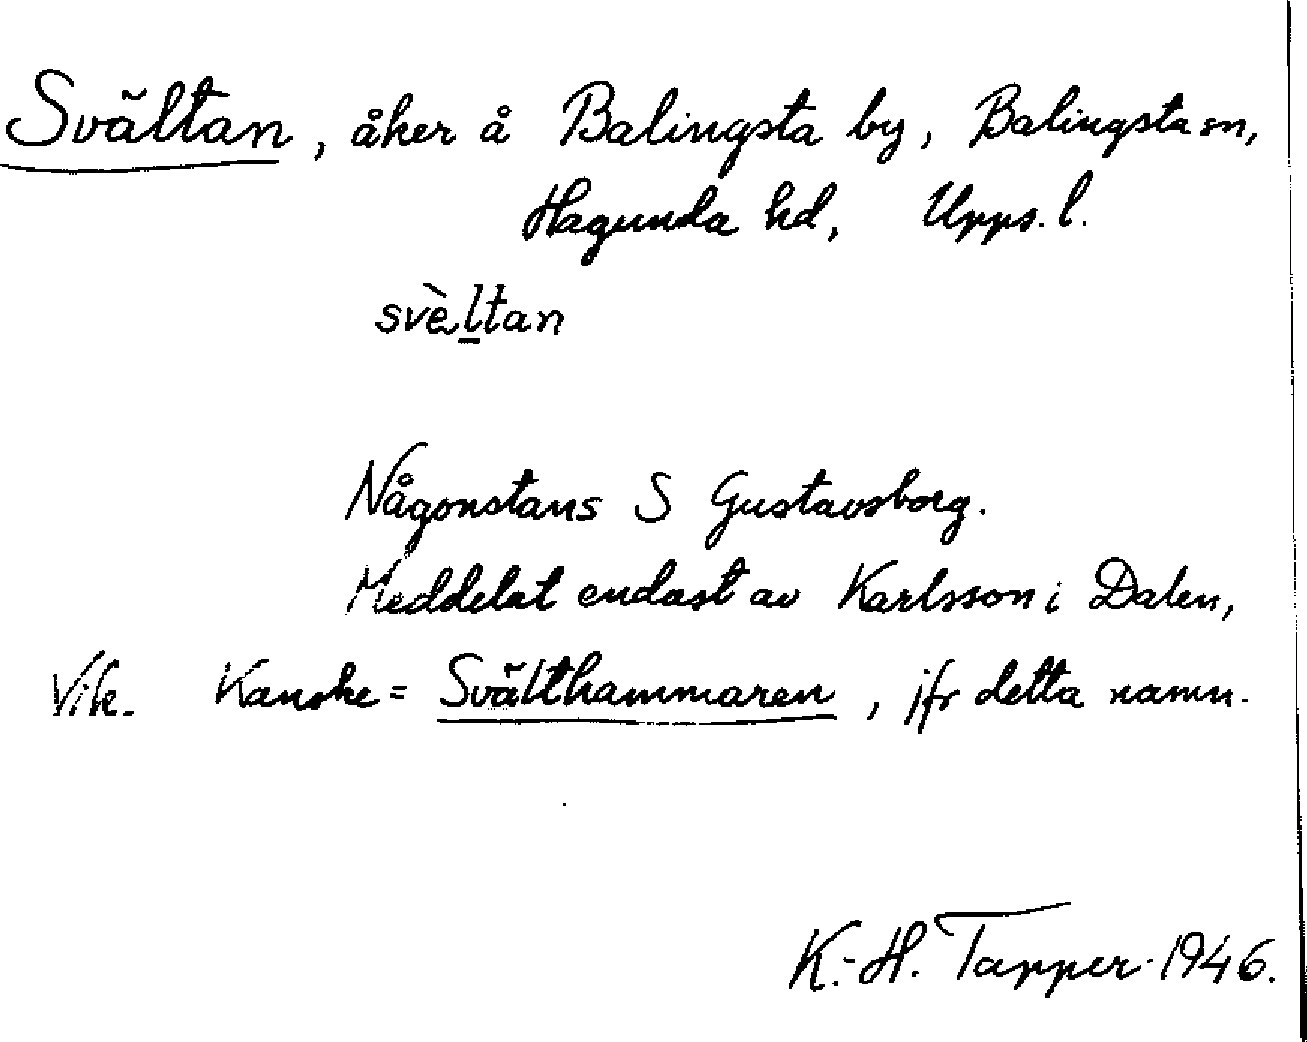 Svältan, åker å Balingsta by, Balingsta sn,
Hagunda hd, Upps. l.
svèltan
Någonstans S Gustavsborg.
Meddelat endast av Karlsson i Dalen,
Vik. Kanske = Svälthammaren, jfr detta namn.
K.-H. Tapper 1946.